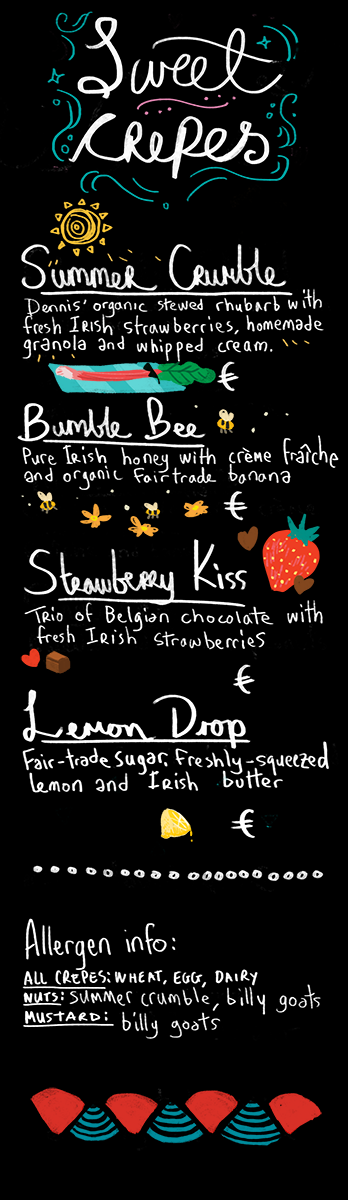 Sweet
CRePes
Summer Crumble
Dennis' organic stewed rhubarb with
fresh Irish strawberries, homemade
granola and whipped cream.
€
Bumble Bee
Pure Irish honey with crème fraîche
and organic Fairtrade banana
€
Strawberry Kiss
Trio of Belgian chocolate with
fresh Irish strawberries
€
Lemon Drop
Fair-trade sugar, Freshly-squeezed
lemon and Irish butter
€
Allergen info:
ALL CREPES: WHEAT, EGG, DAIRY
NUTS: summer crumble, billy goats
MUSTARD: billy goats